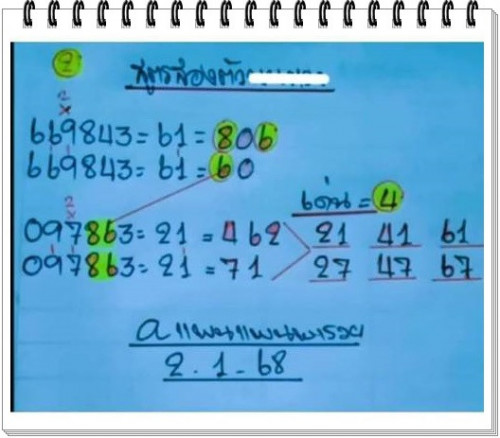 2
สูตรสองตัว
2
x
669843 = 61 = 806
669843 = 61 = 60
เด่น = 4
2
x
097863 = 21 = 462 21 41 61
097863 = 21 = 71 27 47 67
2.1-68